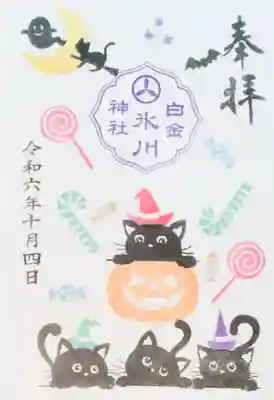 奉拝
白金
氷川
神社
令和六年十月四日